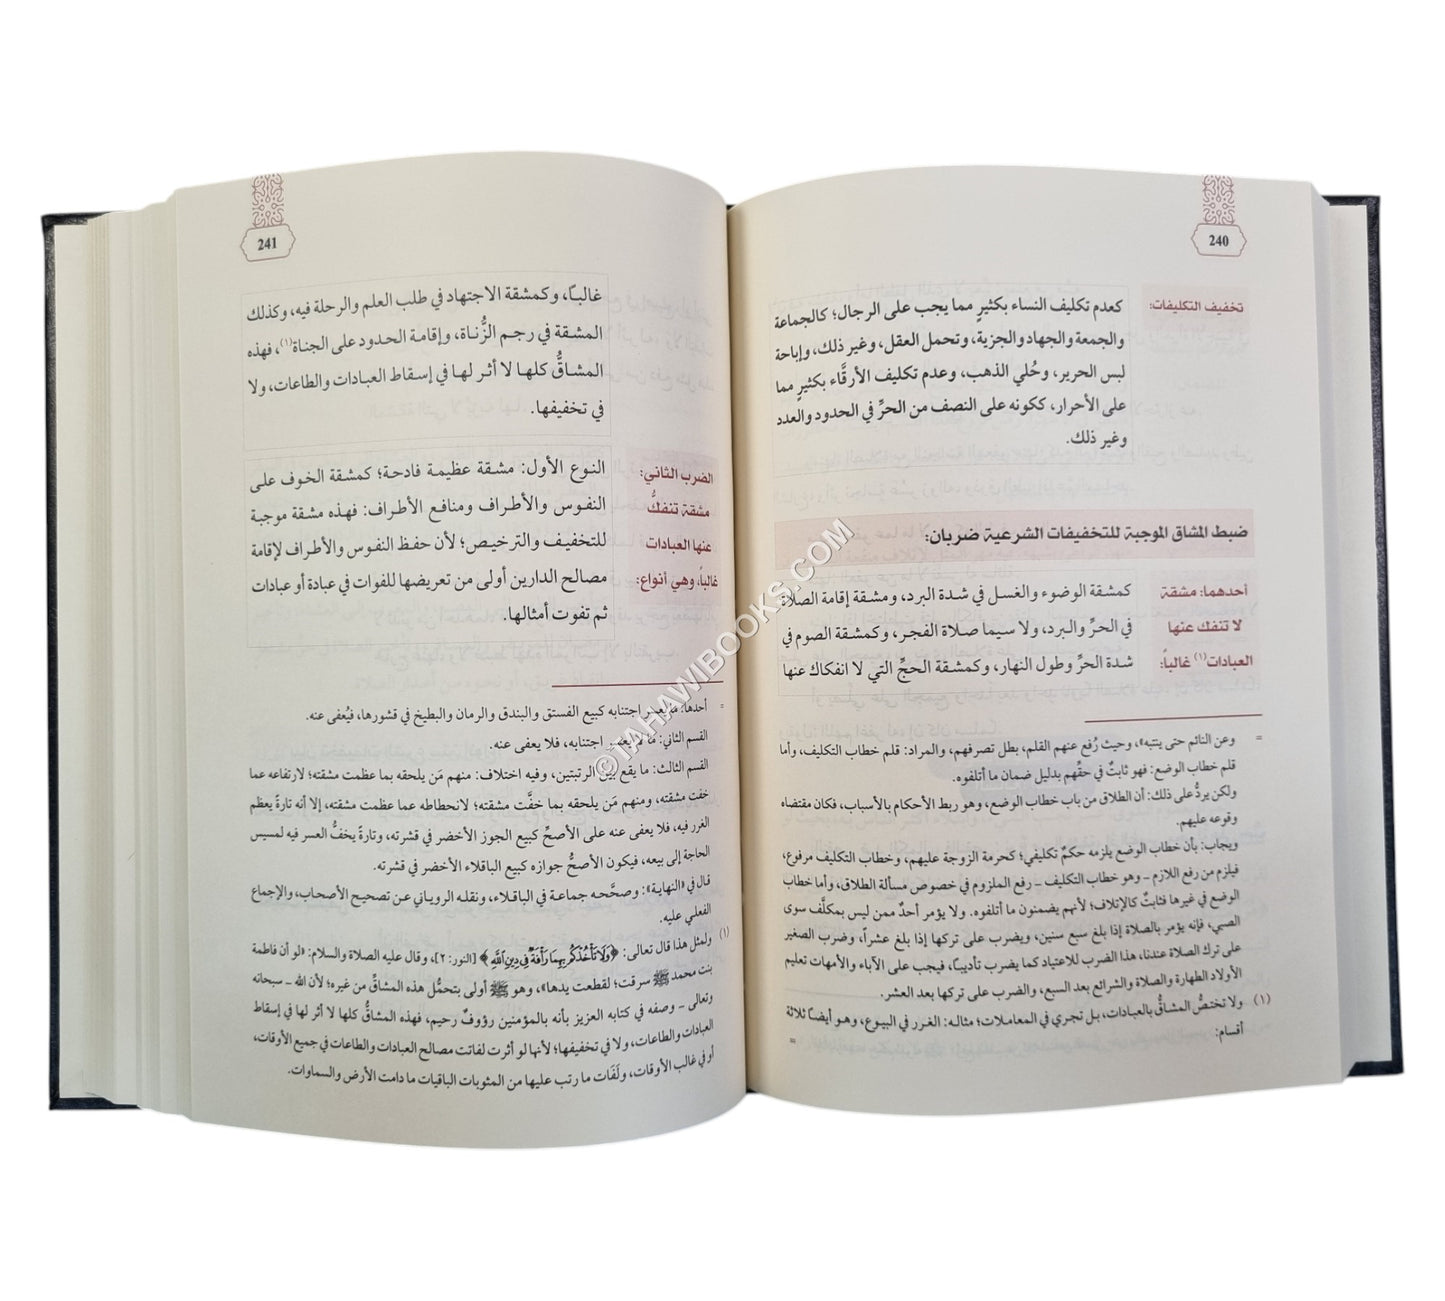 240
تخفيف التكليفات:
كعدم تكليف النساء بكثيرٍ مما يجب على الرجال؛ كالجماعة
والجمعة والجهاد والجزية، وتحمل العقل، وغير ذلك، وإباحة
لبس الحرير، وحُلي الذهب، وعدم تكليف الأرقَّاء بكثيرٍ مما
على الأحرار، ككونه على النصف من الحرِّ في الحدود والعدد
وغير ذلك.
ضبط المشاق الموجبة للتخفيفات الشرعية ضربان:
أحدهما: مشقة
لا تنفك عنها
العبادات(١) غالباً:
كمشقة الوضوء والغسل في شدة البرد، ومشقة إقامة الصلاة
في الحرِّ والبرد، ولا سيما صلاة الفجر، وكمشقة الصوم في
شدة الحرِّ وطول النهار، وكمشقة الحجِّ التي لا انفكاك عنها
= وعن النائم حتى ينتبه»، وحيث رُفع عنهم القلم، بطل تصرفهم، والمراد: قلم خطاب التكليف، وأما
قلم خطاب الوضع: فهو ثابتٌ في حقِّهم بدليل ضمان ما أتلفوه.
ولكن يردُّ على ذلك: أن الطلاق من باب خطاب الوضع، وهو ربط الأحكام بالأسباب، فكان مقتضاه
وقوعه عليهم.
ويجاب: بأن خطاب الوضع يلزمه حكمٌ تكليفي؛ كحرمة الزوجة عليهم، وخطاب التكليف مرفوع،
فيلزم من رفع اللازم - وهو خطاب التكليف - رفع الملزوم في خصوص مسألة الطلاق، وأما خطاب
الوضع في غيرها فثابتٌ كالإتلاف؛ لأنهم يضمنون ما أتلفوه. ولا يؤمر أحدٌ ممن ليس بمكلَّف سوى
الصبي، فإنه يؤمر بالصلاة إذا بلغ سبع سنين، ويضرب على تركها إذا بلغ عشراً، وضرب الصغير
على ترك الصلاة عندنا، هذا الضرب للاعتياد كما يضرب تأديباً، فيجب على الآباء والأمهات تعليم
الأولاد الطهارة والصلاة والشرائع بعد السبع، والضرب على تركها بعد العشر.
(١) ولا تختصُّ المشاقُّ بالعبادات، بل تجري في المعاملات؛ مثاله: الغرر في البيوع، وهو أيضاً ثلاثة
أقسام: =
241
غالباً، وكمشقة الاجتهاد في طلب العلم والرحلة فيه، وكذلك
المشقة في رجم الزُّناة، وإقامة الحدود على الجناة(١)، فهذه
المشاقُّ كلها لا أثر لها في إسقاط العبادات والطاعات، ولا
في تخفيفها.
الضرب الثاني:
مشقة تنفكُّ
عنها العبادات
غالباً، وهي أنواع:
النوع الأول: مشقة عظيمة فادحة؛ كمشقة الخوف على
النفوس والأطراف ومنافع الأطراف: فهذه مشقة موجبة
للتخفيف والترخيص؛ لأن حفظ النفوس والأطراف لإقامة
مصالح الدارين أولى من تعريضها للفوات في عبادة أو عبادات
ثم تفوت أمثالها.
= أحدها: ما يعسر اجتنابه كبيع الفستق والبندق والرمان والبطيخ في قشورها، فيُعفى عنه.
القسم الثاني: ما لا يعسر اجتنابه، فلا يعفى عنه.
القسم الثالث: ما يقع بين الرتبتين، وفيه اختلاف: منهم مَن يلحقه بما عظمت مشقته؛ لارتفاعه عما
خفت مشقته، ومنهم مَن يلحقه بما خفَّت مشقته؛ لانحطاطه عما عظمت مشقته، إلا أنه تارةً يعظم
الغرر فيه، فلا يعفى عنه على الأصحِّ كبيع الجوز الأخضر في قشرته، وتارةً يخفُّ العسر فيه لمسيس
الحاجة إلى بيعه، فيكون الأصحُّ جوازه كبيع الباقلاء الأخضر في قشرته.
قال في «النهاية»: وصحَّحه جماعة في الباقلاء، ونقله الروياني عن تصحيح الأصحاب، والإجماع
الفعلي عليه.
(١) ولمثل هذا قال تعالى: ﴿وَلَا تَأْخُذْكُم بِهِمَا رَأْفَةٌ فِي دِينِ اللَّهِ﴾ [النور: ٢]، وقال عليه الصلاة والسلام: «لو أن فاطمة
بنت محمد ﷺ سرقت؛ لقطعت يدها»، وهو ﷺ أولى بتحمُّل هذه المشاقِّ من غيره؛ لأن الله - سبحانه
وتعالى - وصفه في كتابه العزيز بأنه بالمؤمنين رؤوفٌ رحيم، فهذه المشاقُّ كلها لا أثر لها في إسقاط
العبادات والطاعات، ولا في تخفيفها؛ لأنها لو أثرت لفاتت مصالح العبادات والطاعات في جميع الأوقات،
أو في غالب الأوقات، ولَفَات ما رتب عليها من المثوبات الباقيات ما دامت الأرض والسماوات.
©TAHAWIBOOKS.COM